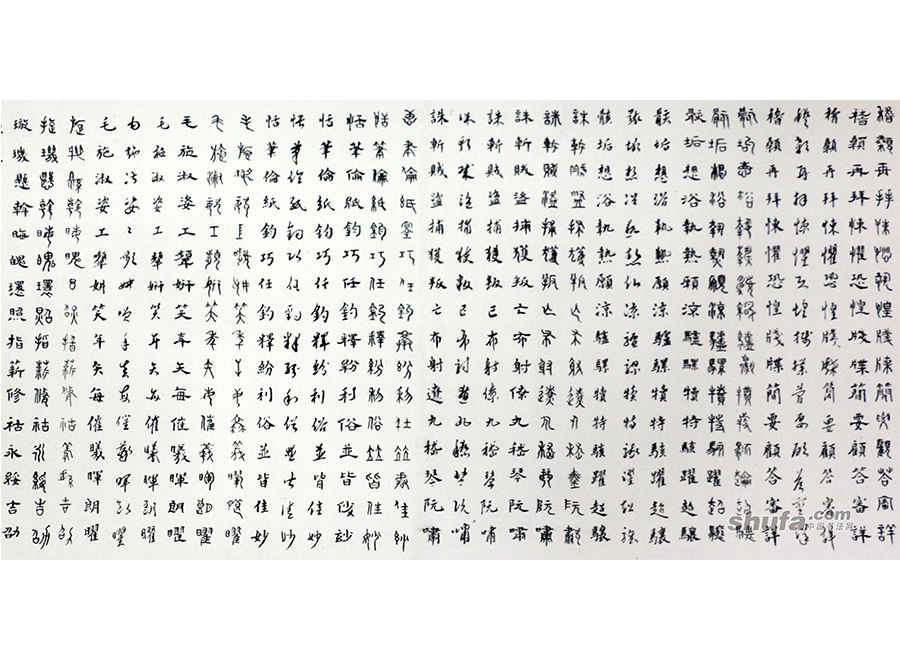 稽顙再拜悚懼恐惶牋牒簡要顧答審詳
稽顙再拜悚懼恐惶牋牒簡要顧答審詳
稽顙再拜悚懼恐惶牋牒簡要顧答審詳
稽顙再拜悚懼恐惶牋牒簡要顧答審詳
稽顙再拜悚懼恐惶牋牒簡要顧答審詳
骸垢想浴執熱願涼驢騾犢特駭躍超驤
骸垢想浴執熱願涼驢騾犢特駭躍超驤
骸垢想浴執熱願涼驢騾犢特駭躍超驤
骸垢想浴執熱願涼驢騾犢特駭躍超驤
骸垢想浴執熱願涼驢騾犢特駭躍超驤
骸垢想浴執熱願涼驢騾犢特駭躍超驤
誅斬賊盜捕獲叛亡布射遼丸嵇琴阮嘯
誅斬賊盜捕獲叛亡布射遼丸嵇琴阮嘯
誅斬賊盜捕獲叛亡布射遼丸嵇琴阮嘯
誅斬賊盜捕獲叛亡布射遼丸嵇琴阮嘯
誅斬賊盜捕獲叛亡布射遼丸嵇琴阮嘯
誅斬賊盜捕獲叛亡布射遼丸嵇琴阮嘯
恬筆倫紙鈞巧任釣釋紛利俗並皆佳妙
恬筆倫紙鈞巧任釣釋紛利俗並皆佳妙
恬筆倫紙鈞巧任釣釋紛利俗並皆佳妙
恬筆倫紙鈞巧任釣釋紛利俗並皆佳妙
恬筆倫紙鈞巧任釣釋紛利俗並皆佳妙
恬筆倫紙鈞巧任釣釋紛利俗並皆佳妙
毛施淑姿工顰妍笑年矢每催曦暉朗曜
毛施淑姿工顰妍笑年矢每催曦暉朗曜
毛施淑姿工顰妍笑年矢每催曦暉朗曜
毛施淑姿工顰妍笑年矢每催曦暉朗曜
毛施淑姿工顰妍笑年矢每催曦暉朗曜
毛施淑姿工顰妍笑年矢每催曦暉朗曜
璇璣懸斡晦魄環照指薪修祜永綏吉劭
璇璣懸斡晦魄環照指薪修祜永綏吉劭
璇璣懸斡晦魄環照指薪修祜永綏吉劭
shufa.com
中国书法网